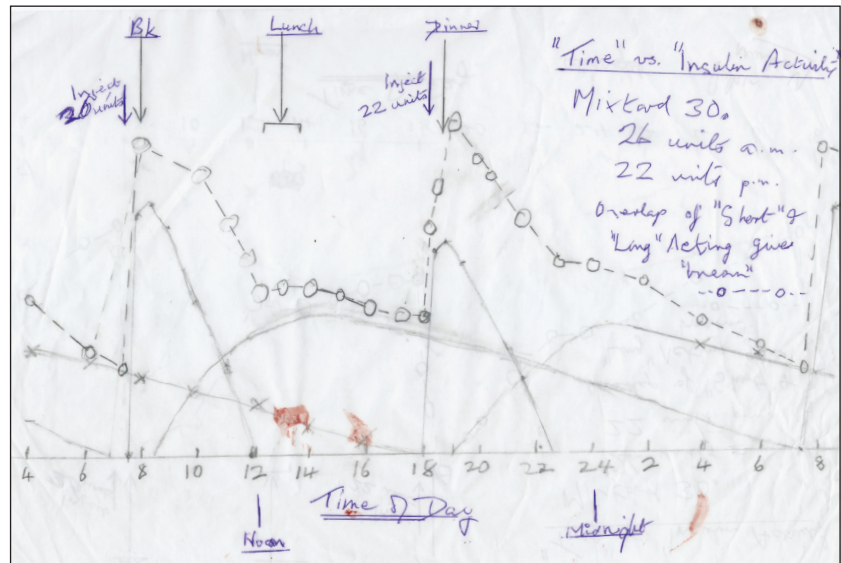 Bk
Lunch
Dinner
Inject
26 units
Inject
22 units
"Time" vs. "Insulin Activity"
Mixtard 30.
26 units a.m.
22 units p.m.
Overlap of "Short" &
"Long" Acting gives
"mean"
4 6 8 10 12 14 16 18 20 22 24 2 4 6 8
Time of Day
Noon
Midnight